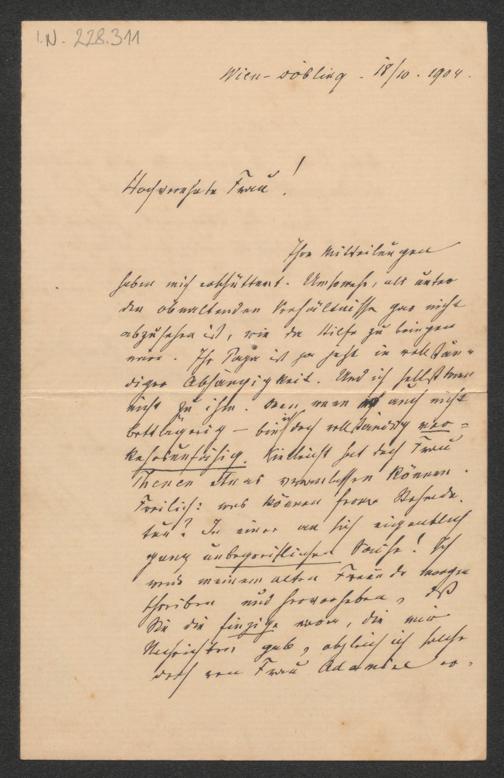 I.N. 228.311
Wien-Döbling. 18/10. 1904.
Hochverehrte Frau!
Ihre Mitteilungen
haben mich erschüttert. Umsomehr, als unter
den obwaltenden Verhältnisse gar nicht
abzusehen ist, wie da Hilfe zu bringen
wäre. Ihr Papa ist ja jetzt in vollstän-
diger Abhängigkeit. Und ich selbst kann
nicht zu ihm. Denn, wenn auch nicht
bettlägerig – bin ich doch vollständig ver-
kehrsunfähig. Vielleicht hat doch Frau
etwas veranlassen können.
Freilich: was können Fremde
tun? In einer an sich eigentlich
ganz unbegreiflichen Sache! Ich
werde meinem alten Freunde morgen
schreiben und hervorheben, daß
Sie die Einzige waren, die mir
Nachrichten gab, obgleich ich solche
doch von Frau er-